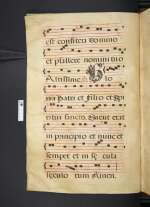 est confiteri domino
et psallere nomini tuo
Altissime. Glo
ria Patri et Filio et Spi
ritui sancto. Sicut erat
in principio et nunc et
semper et in sę cula
sęculo rum Amen.